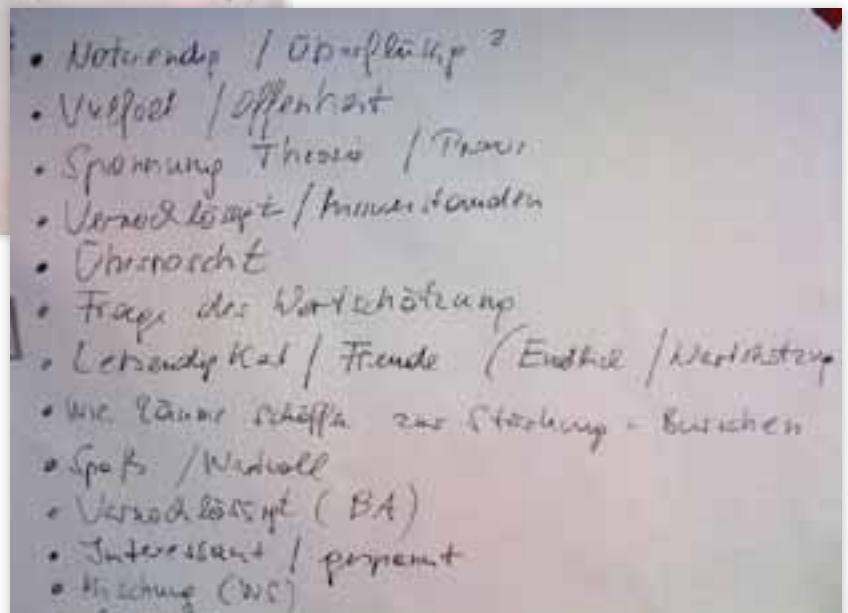 • Notwendig / Überflüssig ?
• Vielfalt / Offenheit
• Spannung Theorie / Praxis
• Vernachlässigt /
• Überrascht
• Frage der Wertschätzung
• Lebendigkeit / Freude ( / Wertschätzung
• Wie Räume schaffen zur Stärkung - Burschen
• Spaß / Wertvoll
• Vernachlässigt (BA)
• Interessant / gespannt
• Mischung (WS)